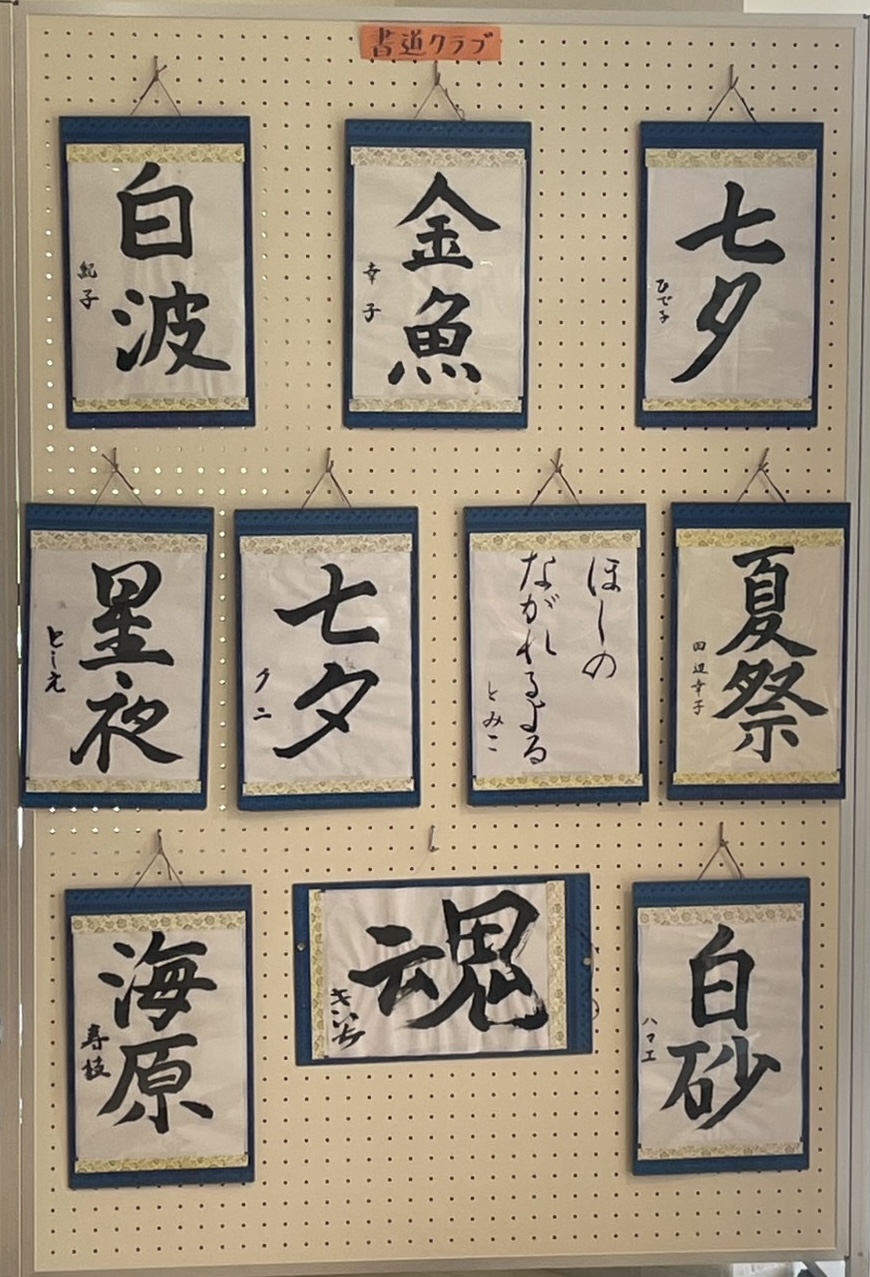 書道クラブ
白波
紀子
金魚
幸子
七夕
ひで子
星夜
としえ
七夕
クニ
ほしの
ながれるよる
とみこ
夏祭
田辺幸子
海原
寿枝
魂
きいち
白砂
ハマエ